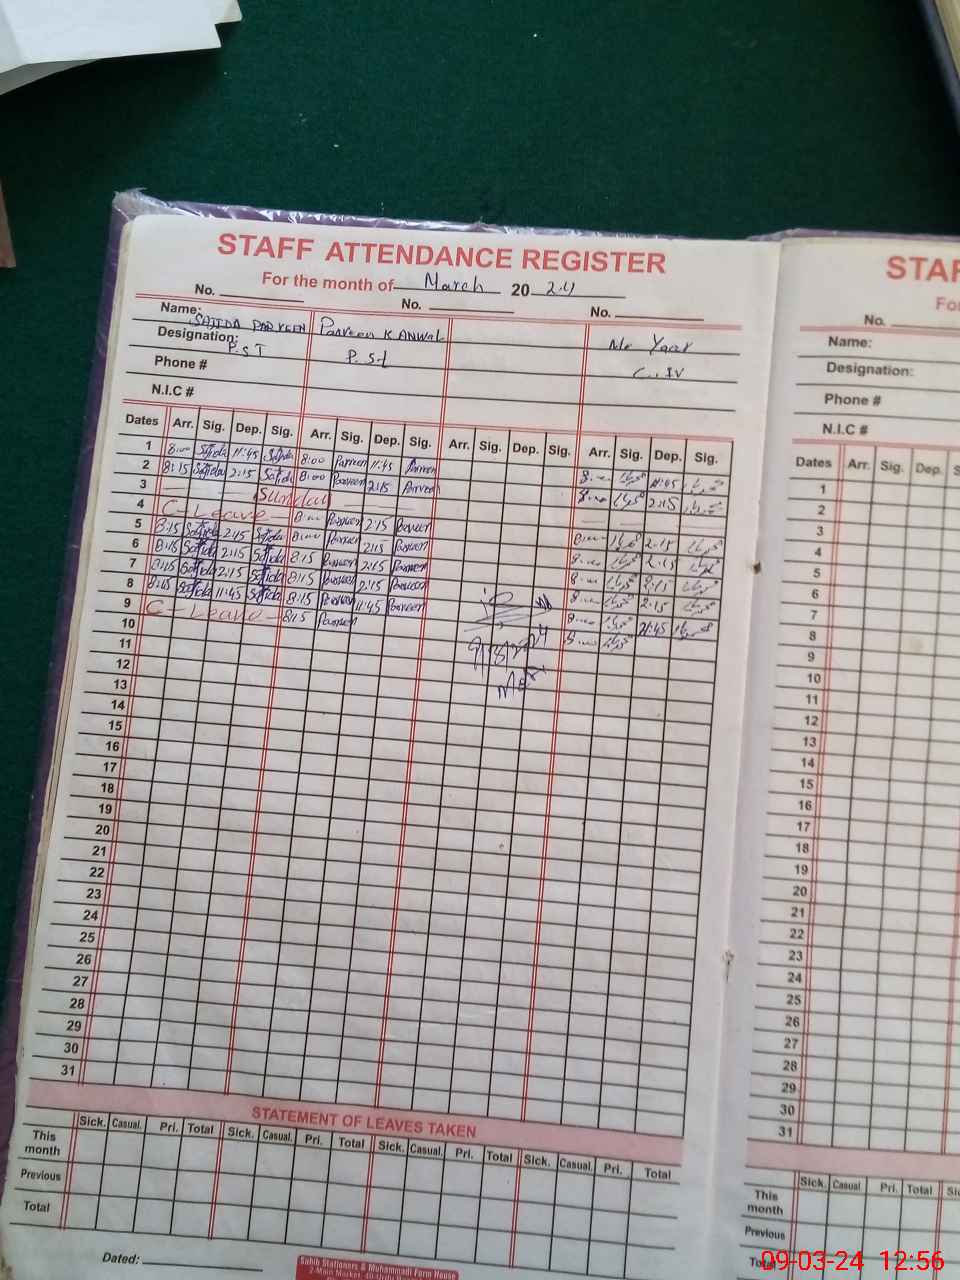 STAFF ATTENDANCE REGISTER
For the month of March 2024
No. No. No.
Name: SAJIDA PARVEEN Parveen KANWAL Mr Yaar
Designation: P.S.T P.S.T C.IV
Phone #
N.I.C #
Dates Arr. Sig. Dep. Sig. Arr. Sig. Dep. Sig. Arr. Sig. Dep. Sig. Arr. Sig. Dep. Sig.
1 8:00 Sajida 11:45 Sajida 8:00 Parveen 11:45 Parveen 8:00 11:45
2 8:15 Sajida 2:15 Sajida 8:00 Parveen 2:15 Parveen 8:00 2:15
3 Sunday
4 C-Leave 8:00 Parveen 2:15 Parveen 8:00 2:15
5 8:15 Sajida 2:15 Sajida 8:00 Parveen 2:15 Parveen 8:00 2:15
6 8:15 Sajida 2:15 Sajida 8:15 Parveen 2:15 Parveen 8:00 2:15
7 8:15 Sajida 2:15 Sajida 8:15 Parveen 2:15 Parveen 8:00 2:15
8 8:15 Sajida 11:45 Sajida 8:15 Parveen 11:45 Parveen 8:00 11:45
9 C-Leave 8:15 Parveen 8:00
10
11
12
13
14
15
16
17
18
19
20
21
22
23
24
25
26
27
28
29
30
31
STATEMENT OF LEAVES TAKEN
Sick. Casual. Pri. Total Sick. Casual. Pri. Total Sick. Casual. Pri. Total Sick. Casual. Pri. Total
This month
Previous
Total
Dated:
Sahib Stationers & Muhammadi Form House
2-Main Market,
STAF
Fo
No.
Name:
Designation:
Phone #
N.I.C #
Dates Arr. Sig. Dep. S
1
2
3
4
5
6
7
8
9
10
11
12
13
14
15
16
17
18
19
20
21
22
23
24
25
26
27
28
29
30
31
Sick. Casual. Pri. Total Si
This month
Previous
Total
09-03-24 12:56